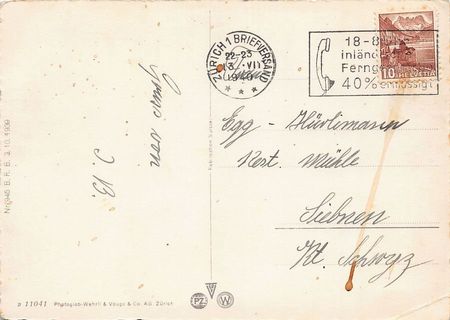 Nr. 945 B. R. B. 3. 10. 1939
Gruss von
J. B.
ZÜRICH 1 BRIEFVERSAND
22-23
13. VII
1940
18-8
inländ
Ferng
40% ermässigt
10 HELVETIA
Egg - Hürlimann
Rest. Mühle
Siebnen
Kt. Schwyz
PZ W
a 11041 Photoglob-Wehrli & Vouga & Co. AG. Zürich